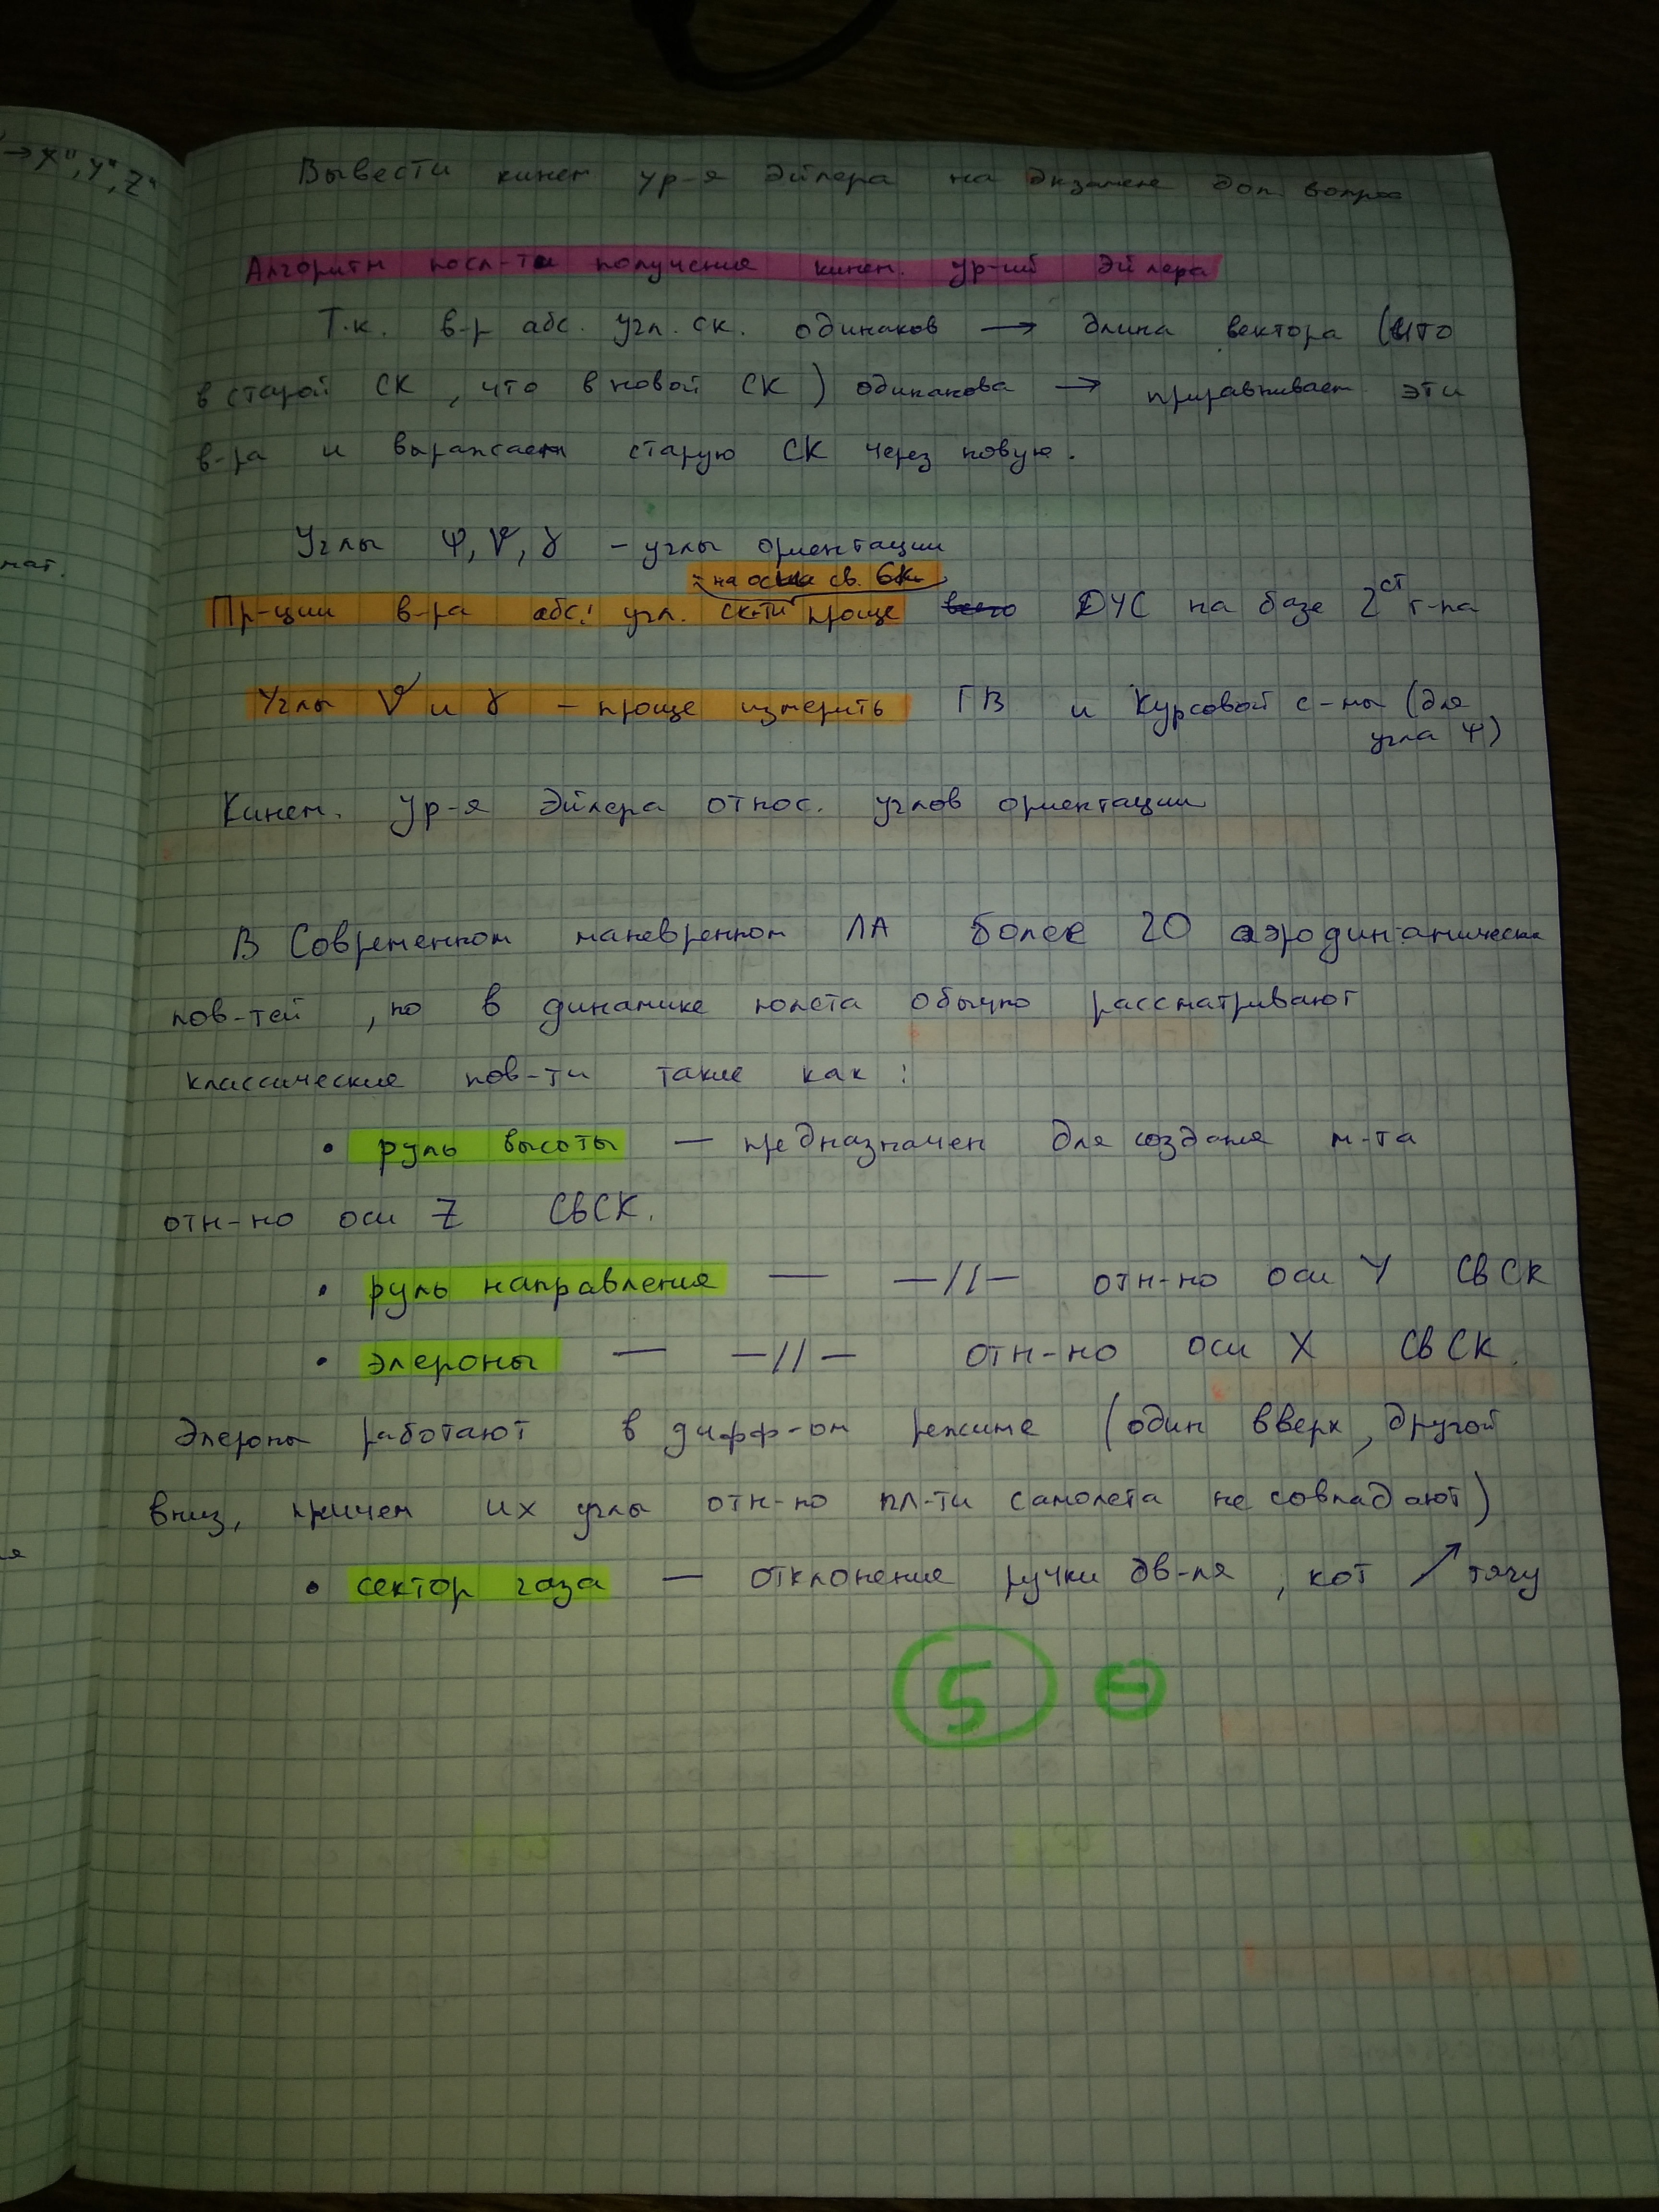 → X", Y", Z"
мат.
Вывести кинем ур-я Эйлера на экзамене доп. вопрос
Алгоритм посл-ти получения кинем. ур-ий Эйлера
Т.к. в-р абс. угл. ск. одинаков → длина вектора (что
в старой СК, что в новой СК) одинакова → приравнивает эти
в-ра и выражаем старую СК через новую.
Углы Ψ, ϑ, γ – углы ориентации
на оси св. СК
Пр-ции в-ра абс. угл. ск-ти проще ДУС на базе 2ст г-па
Углы ϑ и γ – проще измерить ГВ и Курсовой с-мы (для
угла Ψ)
Кинем. ур-я Эйлера относ. углов ориентации
В Современном маневренном ЛА более 20 аэродинамическ
пов-тей, но в динамике полета обычно рассматривают
классические пов-ти такие как:
• руль высоты — предназначен для создания м-та
отн-но оси Z СвСК.
• руль направления — —//— отн-но оси Y СвСК
• элероны — —//— отн-но оси X СвСК.
Элероны работают в дифф-ом режиме (один вверх, другой
вниз, причем их углы отн-но пл-ти самолета не совпадают)
• сектор газа — отклонение ручки дв-ля, кот ↗ тягу
5 ⊖